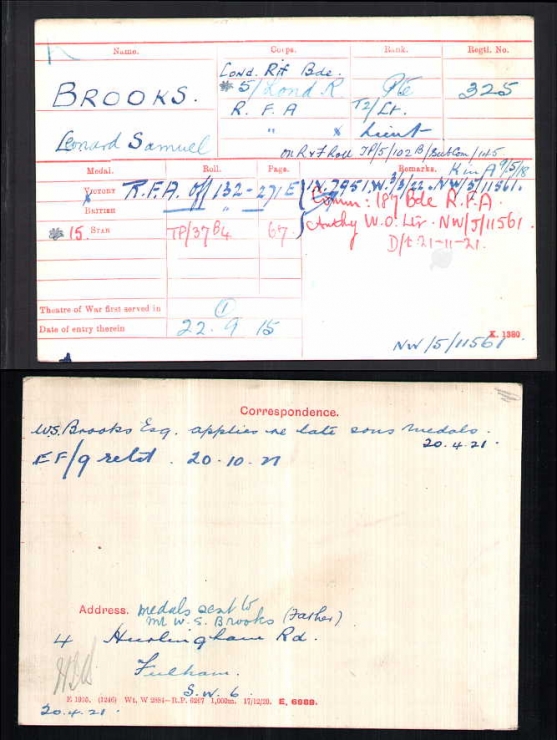 Name. Corps. Rank. Regtl. No.
BROOKS.
Leonard Samuel
Lond. Rif Bde.
* 5/Lond R Pte 325
R. F. A T2/Lt.
" x Lieut
on R & F Roll TP/5/102 B/
Medal. Roll. Page. Remarks. K in A 9/5/18
VICTORY R.F.A. Off/132 - 271 E IV. 7951. W. 3/3/22. NW/5/11561.
BRITISH " Comm: 187 Bde R.F.A.
* 15 STAR TP/37 B4 67 Authy W.O. Ltr. NW/5/11561.
D/t. 21-11-21.
Theatre of War first served in (1)
Date of entry therein 22. 9 15
K. 1380
NW/5/11561
Correspondence.
W.S. Brooks Esq. applies re late sons medals.
20.4.21.
EF/9 retd. 20.10.21
Address. Medals sent to
Mr W. S. Brooks (Father)
4 Hurlingham Rd.
Fulham.
S.W. 6.
E, 6688.
20.4.21.